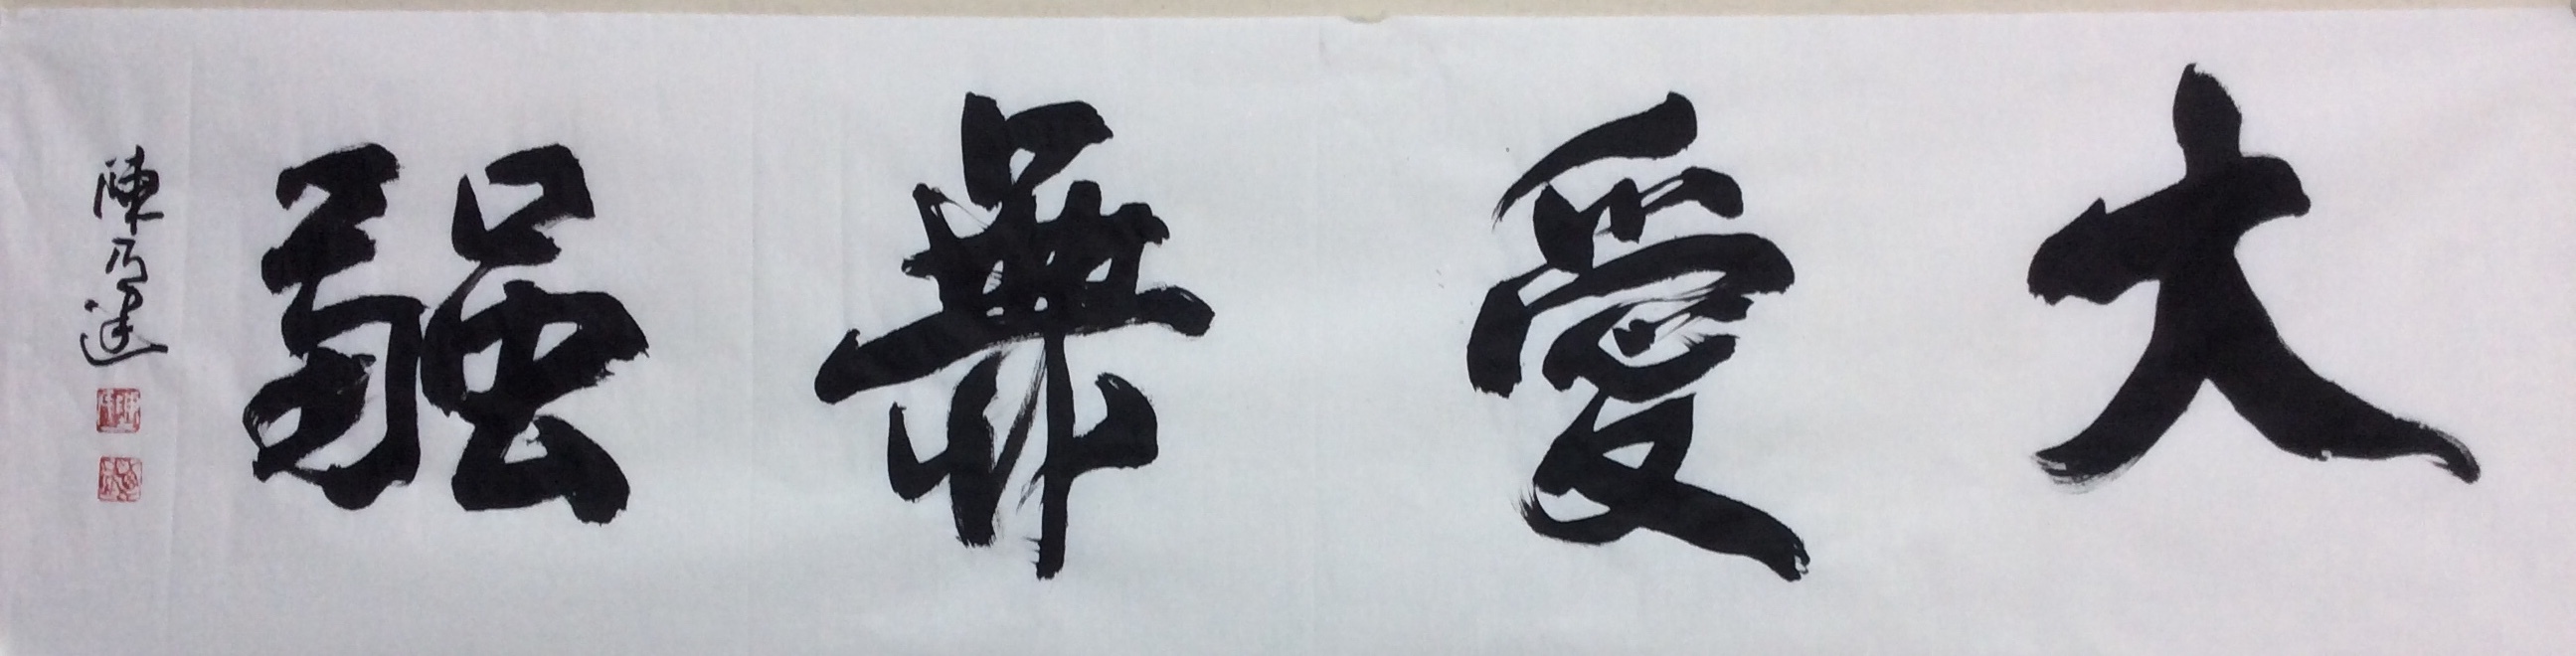 大愛無强
陳乃達